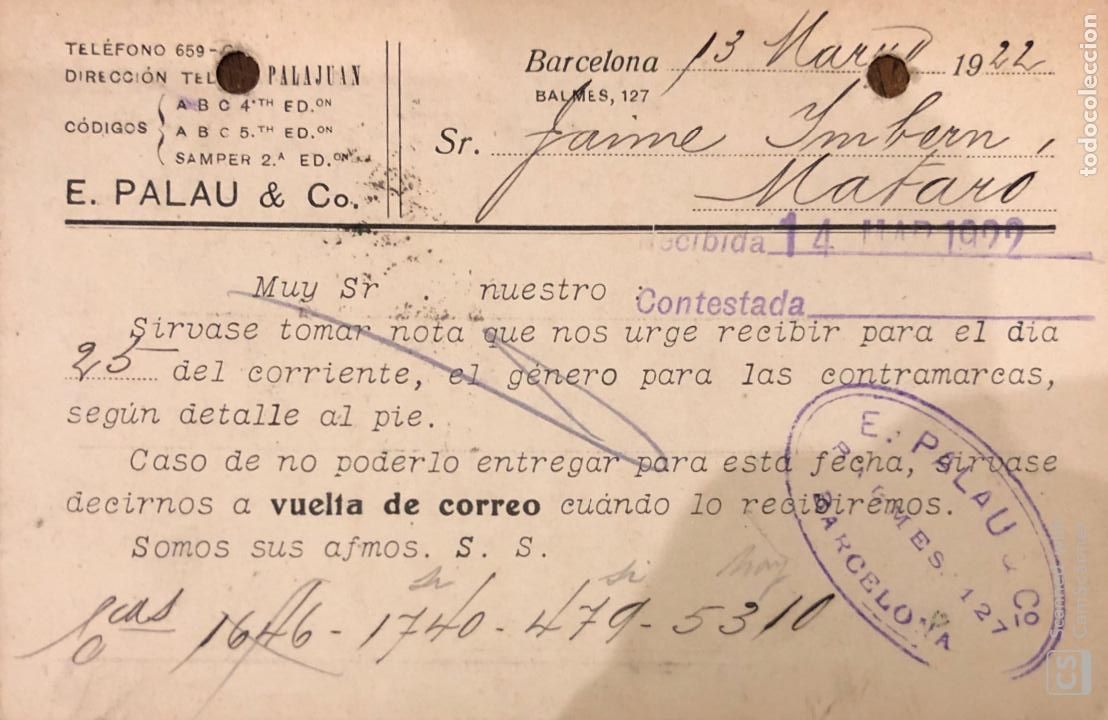 TELÉFONO 659-
DIRECCIÓN TEL PALAJUAN
CÓDIGOS
A B C 4.TH ED.ON
A B C 5.TH ED.ON
SAMPER 2.A ED.ON
E. PALAU & Co.
Barcelona 13 Marzo 1922
BALMES, 127
Sr. Jaime Imbern,
Mataro
Recibida 14 MAR 1922
Muy Sr. nuestro:
Contestada
Sirvase tomar nota que nos urge recibir para el dia
25 del corriente, el género para las contramarcas,
según detalle al pie.
Caso de no poderlo entregar para esta fecha, sirvase
decirnos a vuelta de correo cuándo lo recibiremos.
Somos sus afmos. S. S.
si si hoy
1646 - 1740 - 479 - 5310
E. PALAU & Co
BALMES, 127
BARCELONA
todocoleccion
CS
CamScanner